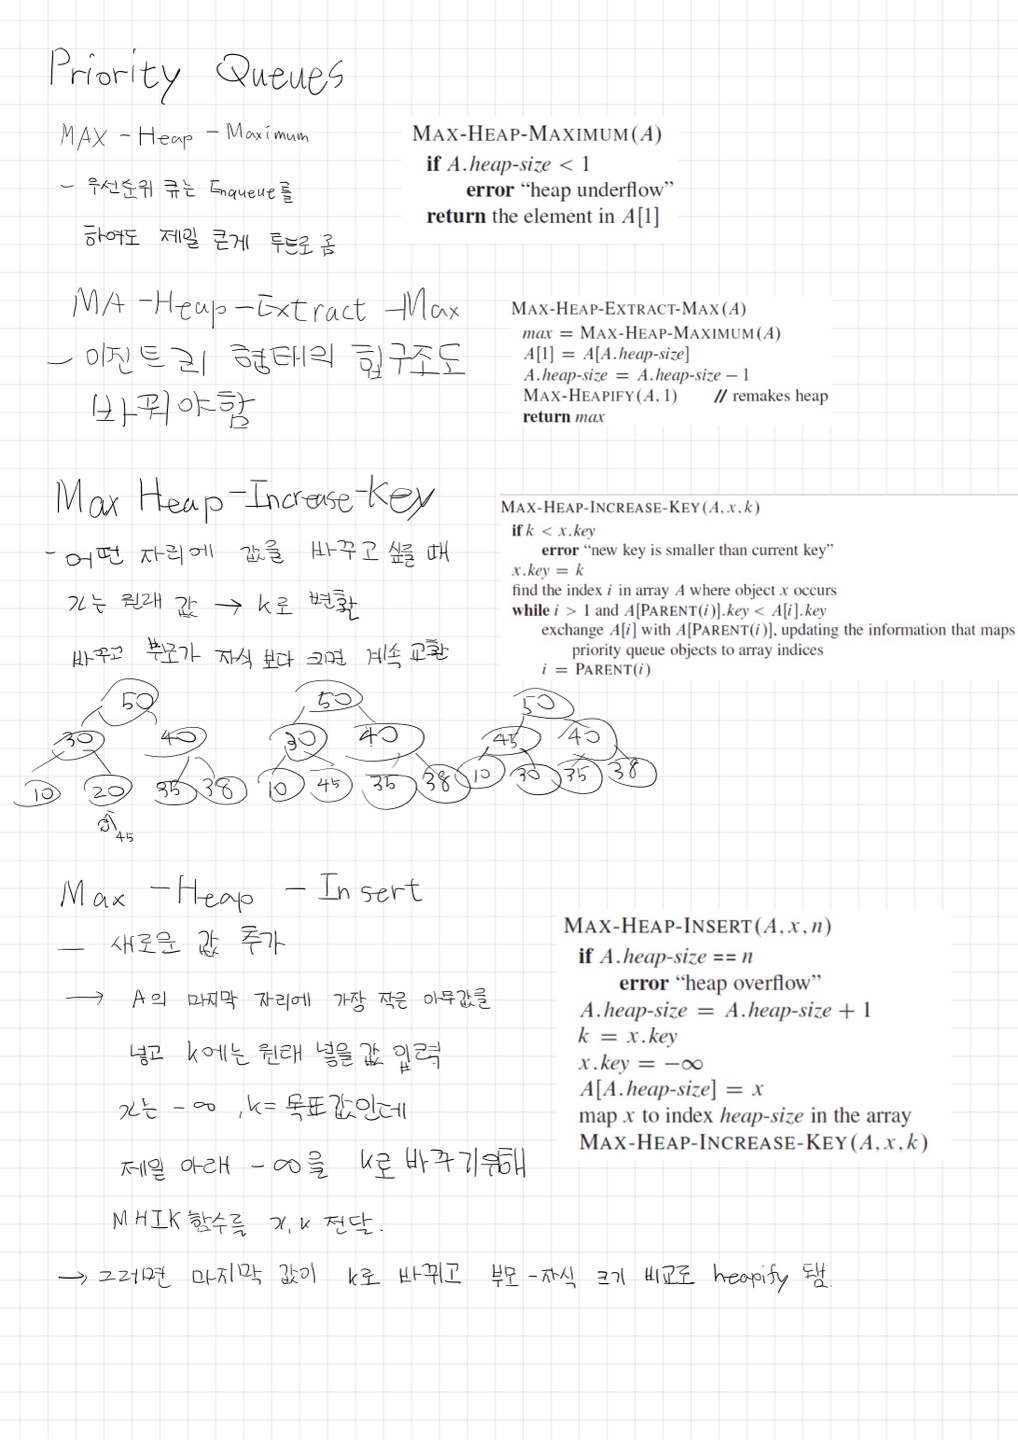 Priority Queues
MAX - Heap - Maximum
- 우선순위 큐는 Enqueue를
하여도 제일 큰게 루트로 옴
MAX-HEAP-MAXIMUM(A)
if A.heap-size < 1
error “heap underflow”
return the element in A[1]
MA -Heap-Extract -Max
- 이진트리 형태의 힙구조도
바꿔야함
MAX-HEAP-EXTRACT-MAX(A)
max = MAX-HEAP-MAXIMUM(A)
A[1] = A[A.heap-size]
A.heap-size = A.heap-size − 1
MAX-HEAPIFY(A, 1) // remakes heap
return max
Max Heap-Increase-Key
- 어떤 자리에 값을 바꾸고 싶을 때
x는 원래 값 → k로 변환
바꾸고 부모가 자식 보다 크면 계속 교환
MAX-HEAP-INCREASE-KEY(A, x, k)
if k < x.key
error “new key is smaller than current key”
x.key = k
find the index i in array A where object x occurs
while i > 1 and A[PARENT(i)].key < A[i].key
exchange A[i] with A[PARENT(i)], updating the information that maps
priority queue objects to array indices
i = PARENT(i)
50 50 50
30 40 30 40 45 40
10 20 35 38 10 45 35 38 10 30 35 38
45
Max - Heap - Insert
- 새로운 값 추가
→ A의 마지막 자리에 가장 작은 아무값을
넣고 k에는 원래 넣을 값 입력
x는 -∞, k= 목표값인데
제일 아래 -∞을 k로 바꾸기위해
MHIK 함수를 x, k 전달.
→ 그러면 마지막 값이 k로 바뀌고 부모-자식 크기 비교로 heapify 됨.
MAX-HEAP-INSERT(A, x, n)
if A.heap-size == n
error “heap overflow”
A.heap-size = A.heap-size + 1
k = x.key
x.key = −∞
A[A.heap-size] = x
map x to index heap-size in the array
MAX-HEAP-INCREASE-KEY(A, x, k)